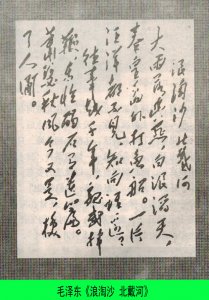 浪淘沙 北戴河
大雨落幽燕,白浪滔天,
秦皇岛外打鱼船。一片
汪洋都不见,知向谁边?
往事越千年,魏武挥
鞭,东临碣石有遗篇。
萧瑟秋风今又是,换
了人间。
毛泽东《浪淘沙 北戴河》